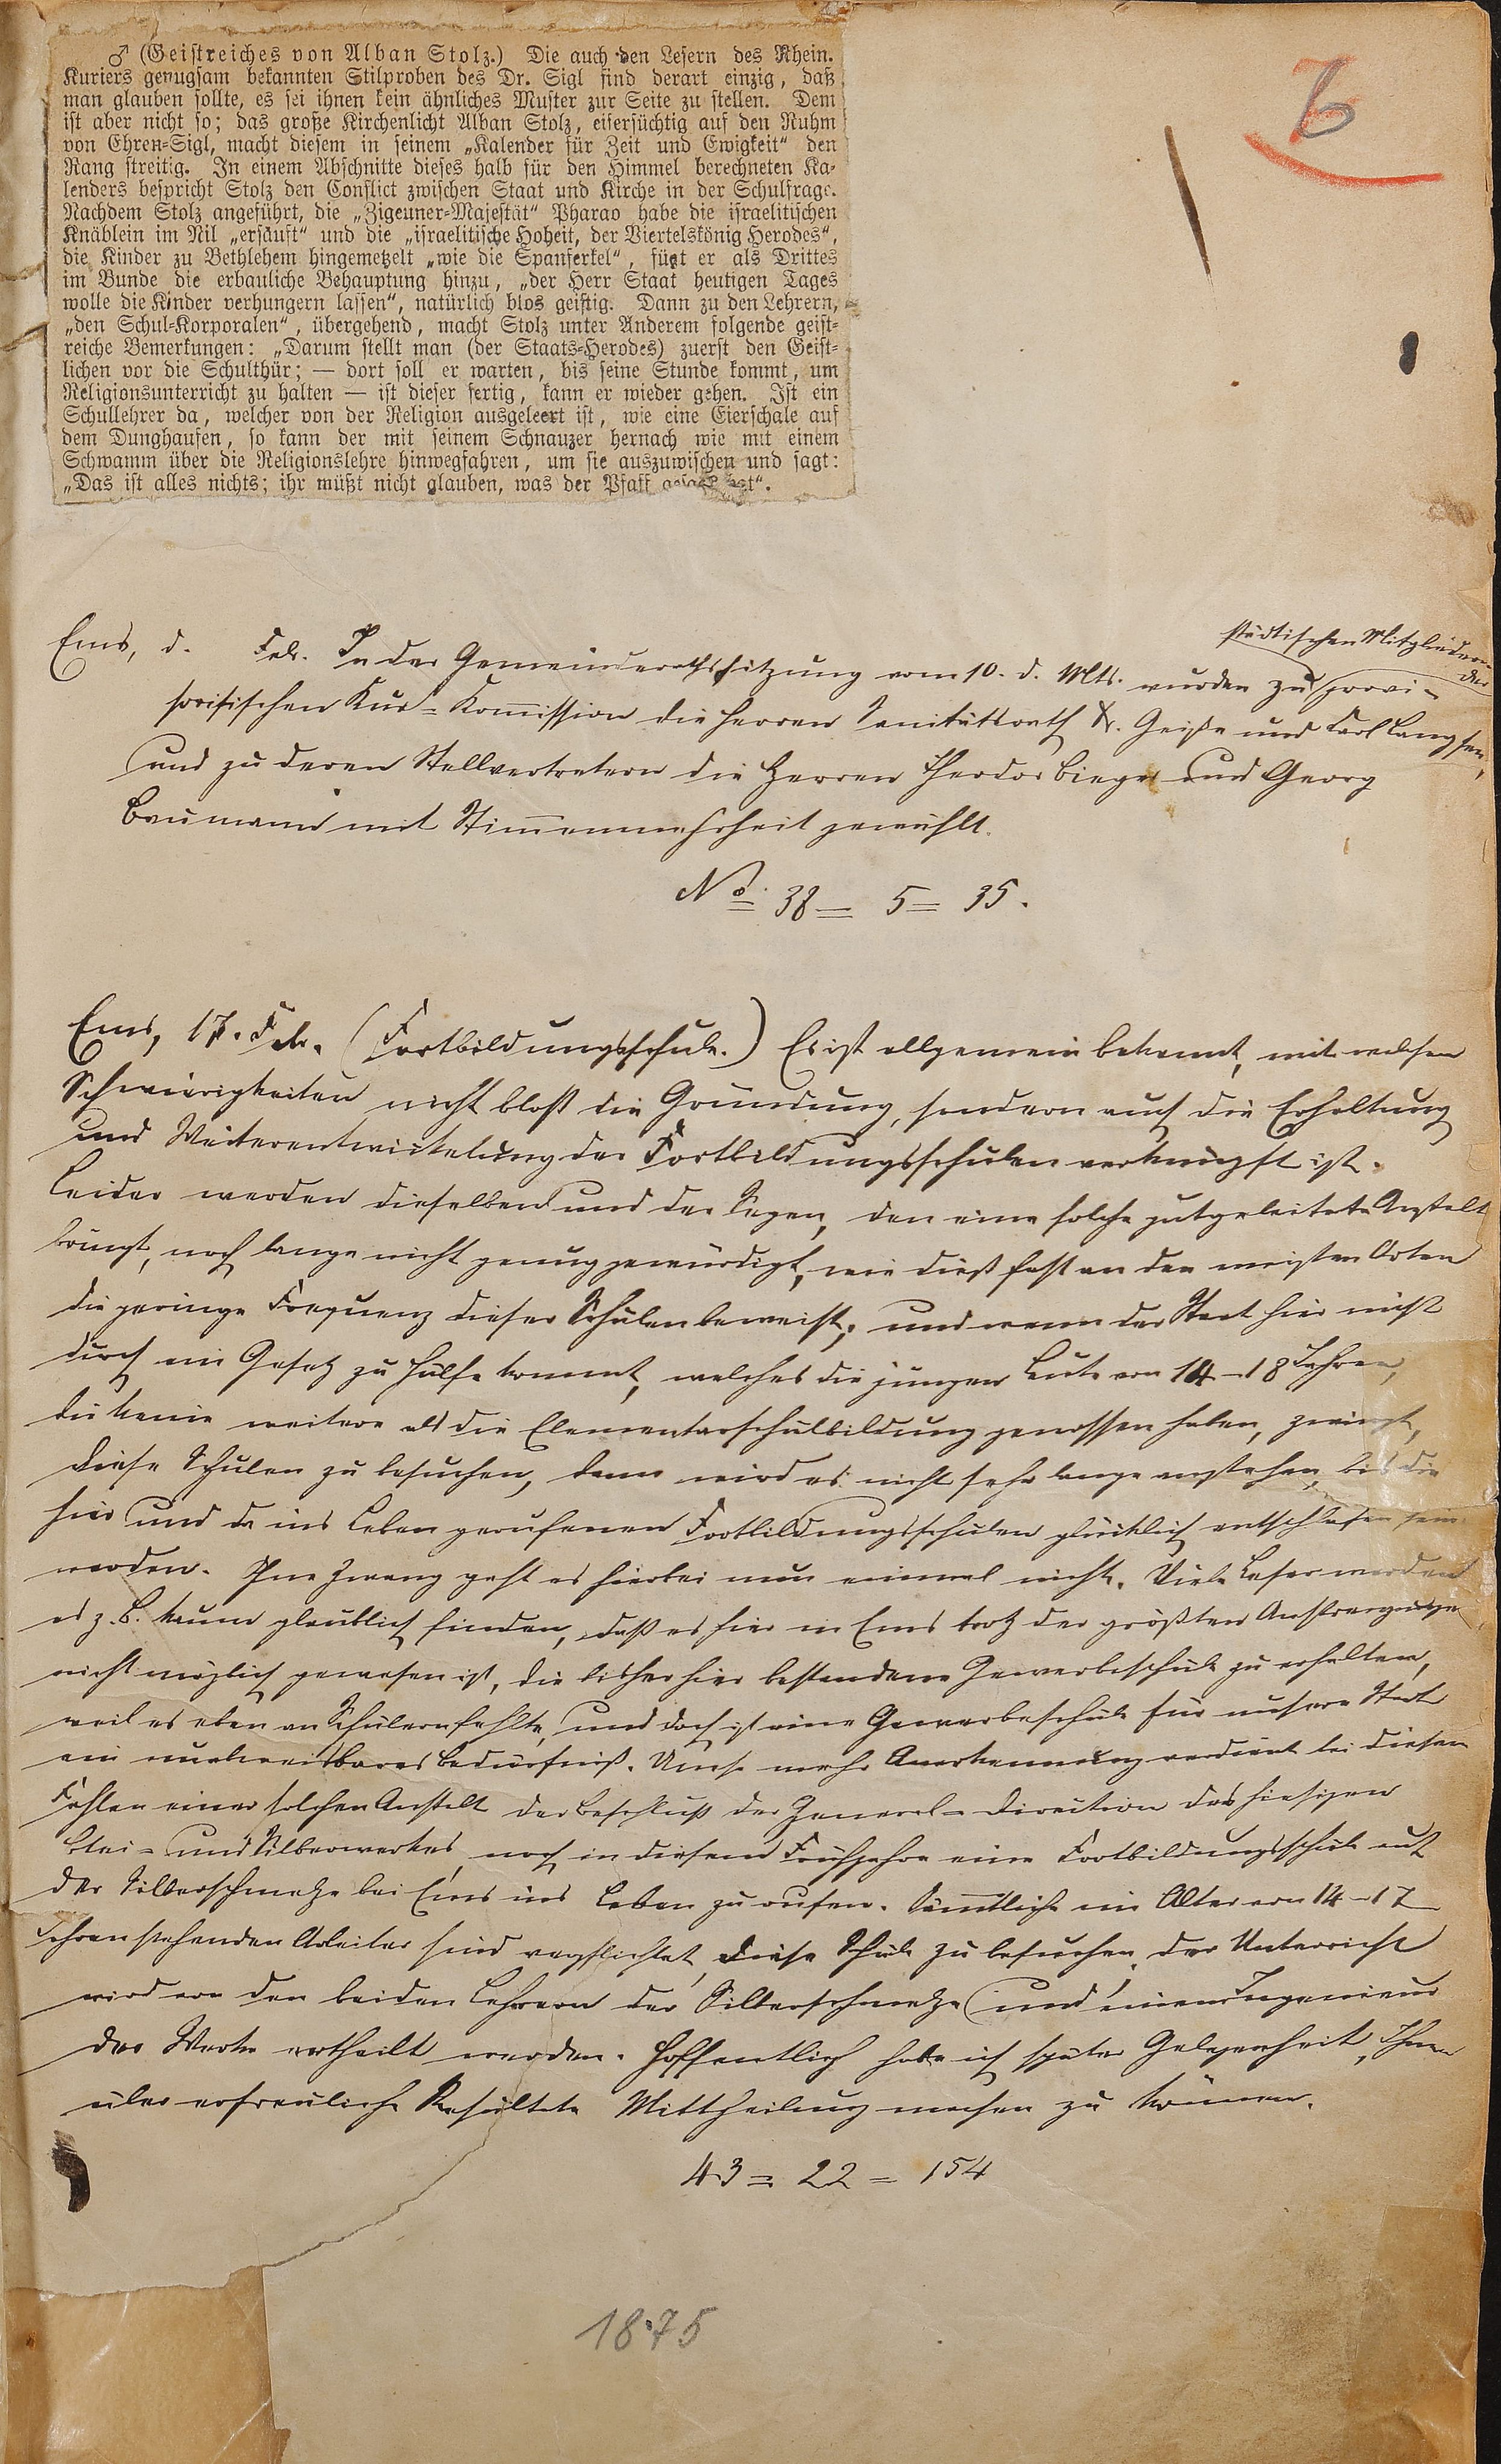 6
♂ (Geistreiches von Alban Stolz.) Die auch den Lesern des Rhein.
Kuriers genugsam bekannten Stilproben des Dr. Sigl sind derart einzig, daß
man glauben sollte, es sei ihnen kein ähnliches Muster zur Seite zu stellen. Dem
ist aber nicht so; das große Kirchenlicht Alban Stolz, eifersüchtig auf den Ruhm
von Ehren-Sigl, macht diesem in seinem „Kalender für Zeit und Ewigkeit“ den
Rang streitig. In einem Abschnitte dieses halb für den Himmel berechneten Ka-
lenders bespricht Stolz den Conflict zwischen Staat und Kirche in der Schulfrage.
Nachdem Stolz angeführt, die „Zigeuner-Majestät“ Pharao habe die israelitischen
Knäblein im Nil „ersäuft“ und die „israelitische Hoheit, der Viertelskönig Herodes“,
die Kinder zu Bethlehem hingemetzelt „wie die Spanferkel“, fügt er als Drittes
im Bunde die erbauliche Behauptung hinzu, „der Herr Staat heutigen Tages
wolle die Kinder verhungern lassen“, natürlich blos geistig. Dann zu den Lehrern,
„den Schul-Korporalen“, übergehend, macht Stolz unter Anderem folgende geist-
reiche Bemerkungen: „Darum stellt man (der Staats-Herodes) zuerst den Geist-
lichen vor die Schulthür; — dort soll er warten, bis seine Stunde kommt, um
Religionsunterricht zu halten — ist dieser fertig, kann er wieder gehen. Ist ein
Schullehrer da, welcher von der Religion ausgeleert ist, wie eine Eierschale auf
dem Dunghaufen, so kann der mit seinem Schnauzer hernach wie mit einem
Schwamm über die Religionslehre hinwegfahren, um sie auszuwischen und sagt:
„Das ist alles nichts; ihr müßt nicht glauben, was der Pfaff gesagt hat“.
städtischen Mitgliedern
der
Ems, d. Feb. In der Gemeinderathssitzung vom 10. d. Mts. wurden zu provi-
sorischen Kur-Kommission die Herren Sanitätsrath Dr. Geiße und Karl Lang
und zu deren Stellvertretern die Herren Theodor Bieger und Georg
Baumann mit Stimmenmehrheit gewählt.
No. 38 = 5 = 35.
Ems, 17. Feb. (Fortbildungsschule.) Es ist allgemein bekannt, mit welchen
Schwierigkeiten nicht bloß die Gründung, sondern auch die Erhaltung
und Weiterentwickelung der Fortbildungsschulen verknüpft ist.
Leider werden dieselben und der Segen, den eine solche gutgeleitete Anstalt
bringt, noch lange nicht genug gewürdigt, wie dieß fast an den meisten Orten
die geringe Frequenz dieser Schulen beweist; und wenn der Staat hier nicht
durch ein Gesetz zu Hülfe kommt, welches die jungen Leute von 14–18 Jahren,
die keine weitere als die Elementarschulbildung genossen haben, zwingt,
diese Schulen zu besuchen, dann wird es nicht sehr lange anstehen, bis die
hier und da ins Leben gerufenen Fortbildungsschulen glücklich entschlafen sein
werden. Ohne Zwang geht es hierbei nun einmal nicht. Viele Leser werden
es z. B. kaum glaublich finden, daß es hier in Ems trotz der größten Anstrengungen
nicht möglich gewesen ist, die bisher hier bestandene Gewerbeschule zu erhalten,
weil es eben an Schülern fehlte, und doch ist eine Gewerbeschule für unsere Stadt
ein unabweisbares Bedürfniß. Umso mehr Anerkennung verdient bei diesem
Fehlen einer solchen Anstalt der Beschluß der General-Direction des hiesigen
Blei- und Silberwerkes, noch in diesem Frühjahre eine Fortbildungsschule auf
der Silberschmelze bei Ems ins Leben zu rufen. Sämmtliche im Alter von 14–17
Jahren stehenden Arbeiter sind verpflichtet, diese Schule zu besuchen, der Unterricht
wird von den beiden Lehrern der Silberschmelze und einem Ingenieur
des Werks ertheilt werden. Hoffentlich habe ich später Gelegenheit, Ihnen
über erfreuliche Resultate Mittheilung machen zu können.
43 = 22 = 154
1875